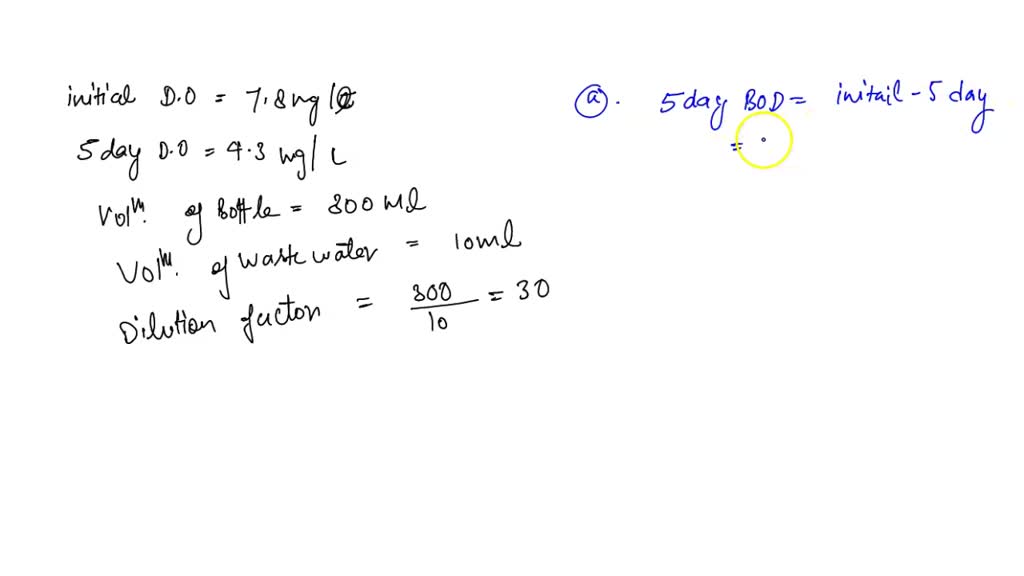 initial D.O = 7.8 mg/L
5 day D.O = 4.3 mg/L
Vol^m. of Bottle = 300 ml
Vol^m. of waste water = 10 ml
Dilution factor = 300/10 = 30
(a). 5 day BOD = initail - 5 day
=